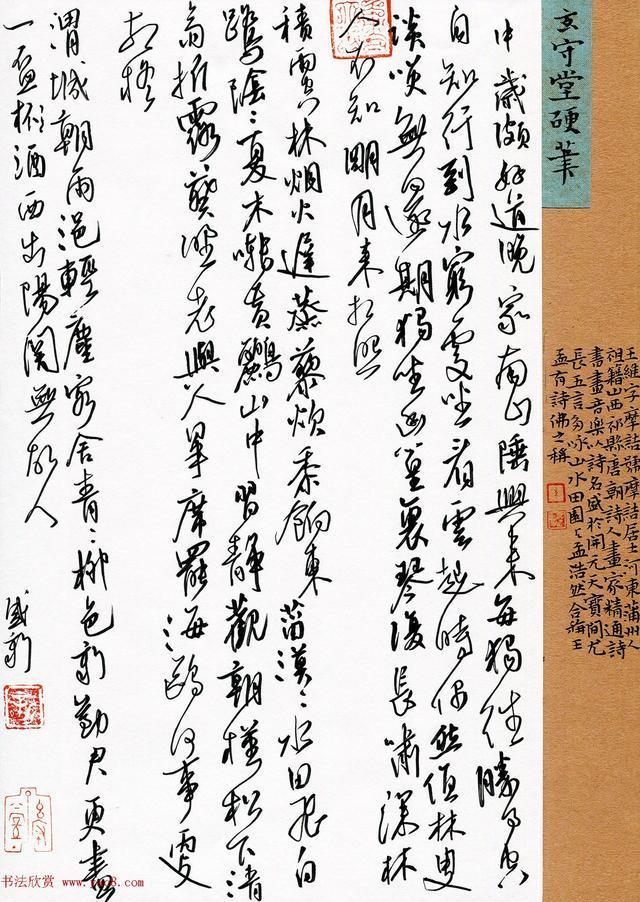 玄守堂硬筆
王維字摩詰號摩詰居士河東蒲州人
祖籍山西祁縣唐朝詩人畫家精通詩
書畫音樂以詩名盛於開元天寶間尤
長五言多咏山水田園与孟浩然合稱王
孟有詩佛之稱
中歲頗好道晚家南山陲興來每獨往勝事空
自知行到水窮處坐看雲起時偶然值林叟
談笑無還期獨坐幽篁裏琴復長嘯深林
人不知明月來相照
積雨空林烟火遲蒸藜炊黍餉東菑漠〻水田飛白
鷺陰〻夏木囀黃鸝山中習靜觀朝槿松下清
齋折露葵野老與人爭席罷海鷗何事更
相疑
渭城朝雨浥輕塵客舍青〻柳色新勸君更盡
一盃杯酒西出陽關無故人
盛新
书法欣赏